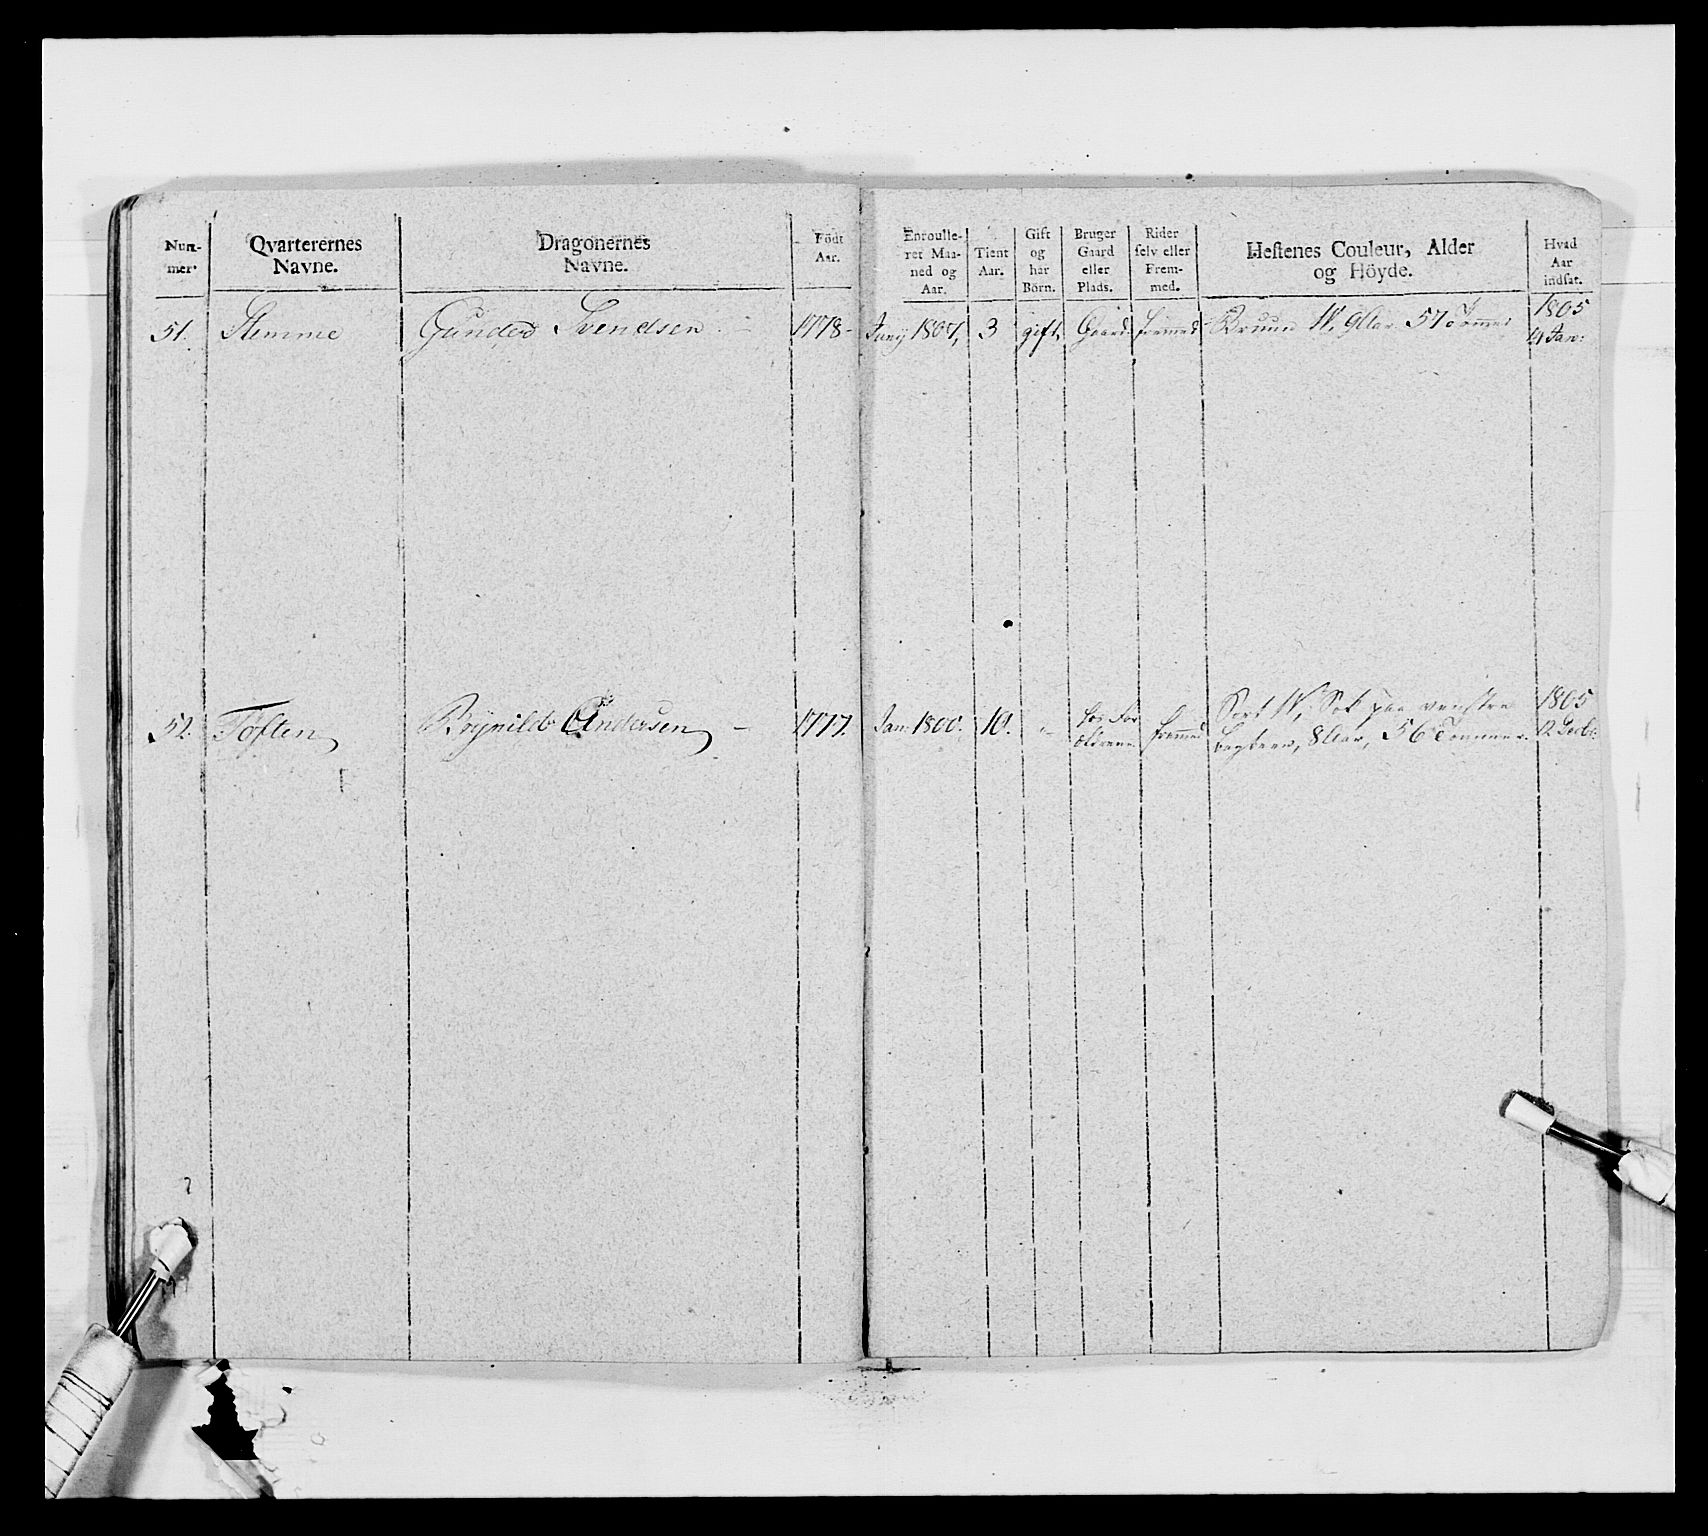 Num-
mer.
Qvarterernes
Navne.
Dragonernes
Navne.
Födt
Aar.
Enroulle-
ret Maa-
ned og
Aar.
Tient
Aar.
Gift
og
har
Börn.
Bruger
Gaard
eller
Plads.
Rider
selv eller
Frem-
med.
Hestenes Couleur, Alder
og Höyde.
Hvad
Aar
indsat.
51. Stemme Gunder Svendsen 1778 Juny 1807, 3 gift Gaard fremmed Bruun W, 9 Aar. 57 Tommer 1805
14 Jan:
52. Tøften Brynild Andersen 1777. Jan: 1800. 10. hos For
ældrene fremmed Sort W, Sok paa venstre
bagbeen, 8 Aar, 56 Tommer. 1805
12 Decbr: